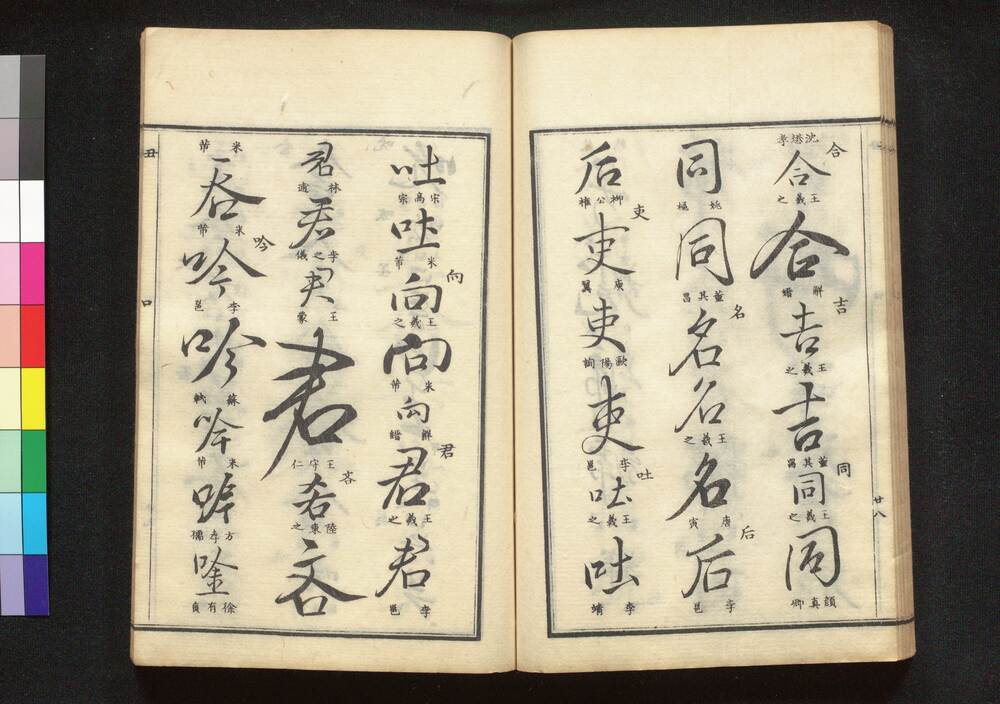 合 合 王羲之 合 解縉 吉 吉 王羲之 吉 董其昌 同 同 王羲之 同 顏真卿
同 姚樞 同 董其昌 名 名 名 王羲之 名 唐寅 后 后 李邕
后 柳公權 吏 吏 庾翼 吏 歐陽詢 吏 李邕 吐 吐 王羲之 吐 李靖
廿八
吐 宋高宗 吐 米芾 向 向 王羲之 向 米芾 向 解縉 君 君 王羲之 君 李邕
君 林逋 君 李之儀 君 王蒙 君 王守仁 吝 吝 陸東之 吝
米芾 吞 米芾 吟 吟 李邕 吟 蘇軾 吟 米芾 吟 方孝孺 唫 徐有貞
丑 口